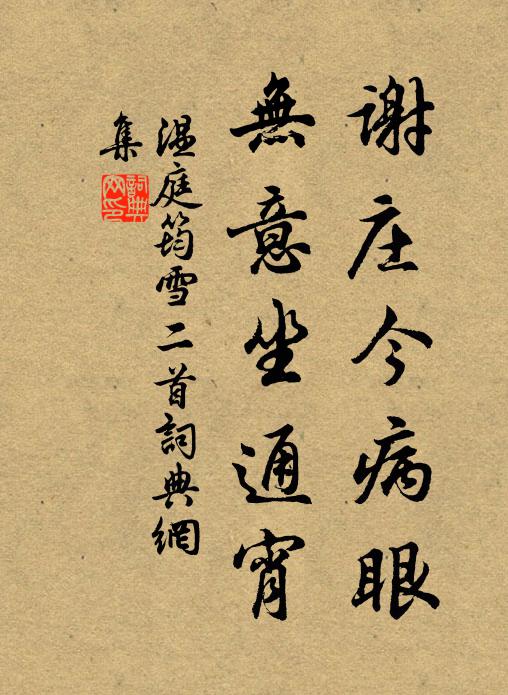 謝庄今病眼
無意坐通宵
温庭筠雪二首詞典網
集
詞典
网印